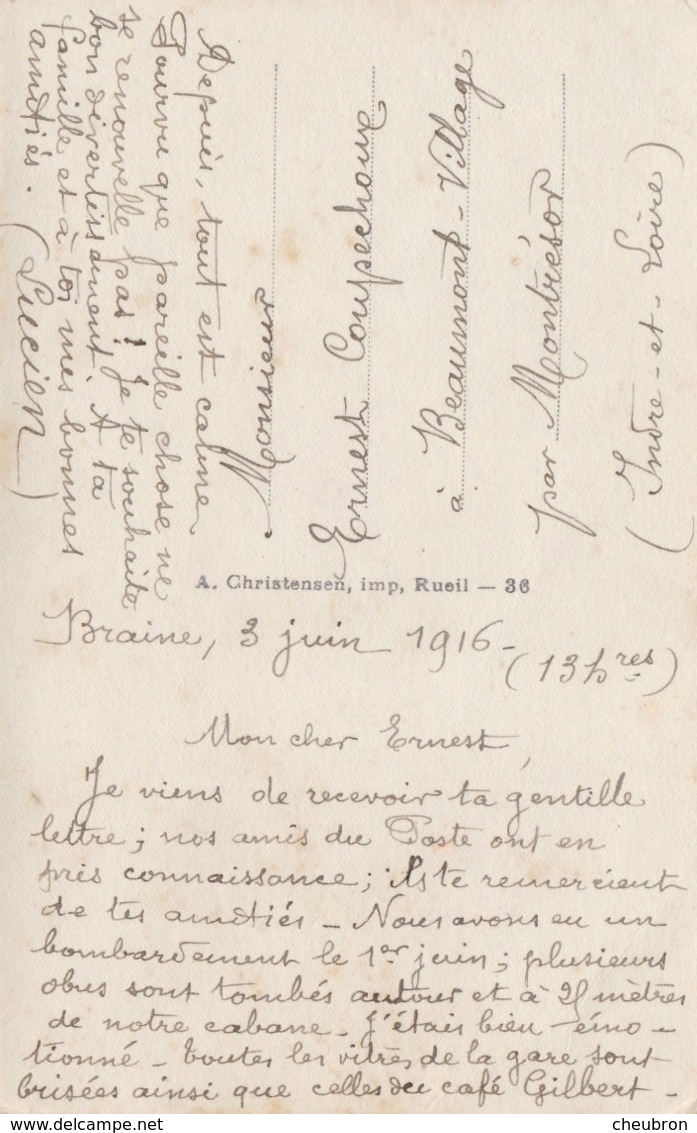 Braine, 3 juin 1916 -
(13 hres)
Mon cher Ernest,
Je viens de recevoir ta gentille
lettre ; nos amis du Poste ont en
pris connaissance ; ils te remercient
de tes amitiés - Nous avons eu un
bombardement le 1er juin ; plusieurs
obus sont tombés autour et à 25 mètres
de notre cabane - J'étais bien émo-
tionné - toutes les vitres de la gare sont
brisées ainsi que celles du café Gilbert -
Depuis, tout est calme
Pourvu que pareille chose ne
se renouvelle pas ! Je te souhaite
bon divertissement. A ta
famille et à toi mes bonnes
amitiés. (Lucien)
Monsieur
Ernest Coupechoux
à Beaumont-Village
par Montrésor
(Indre-et-Loire)
A. Christensen, imp, Rueil — 36
cheubron